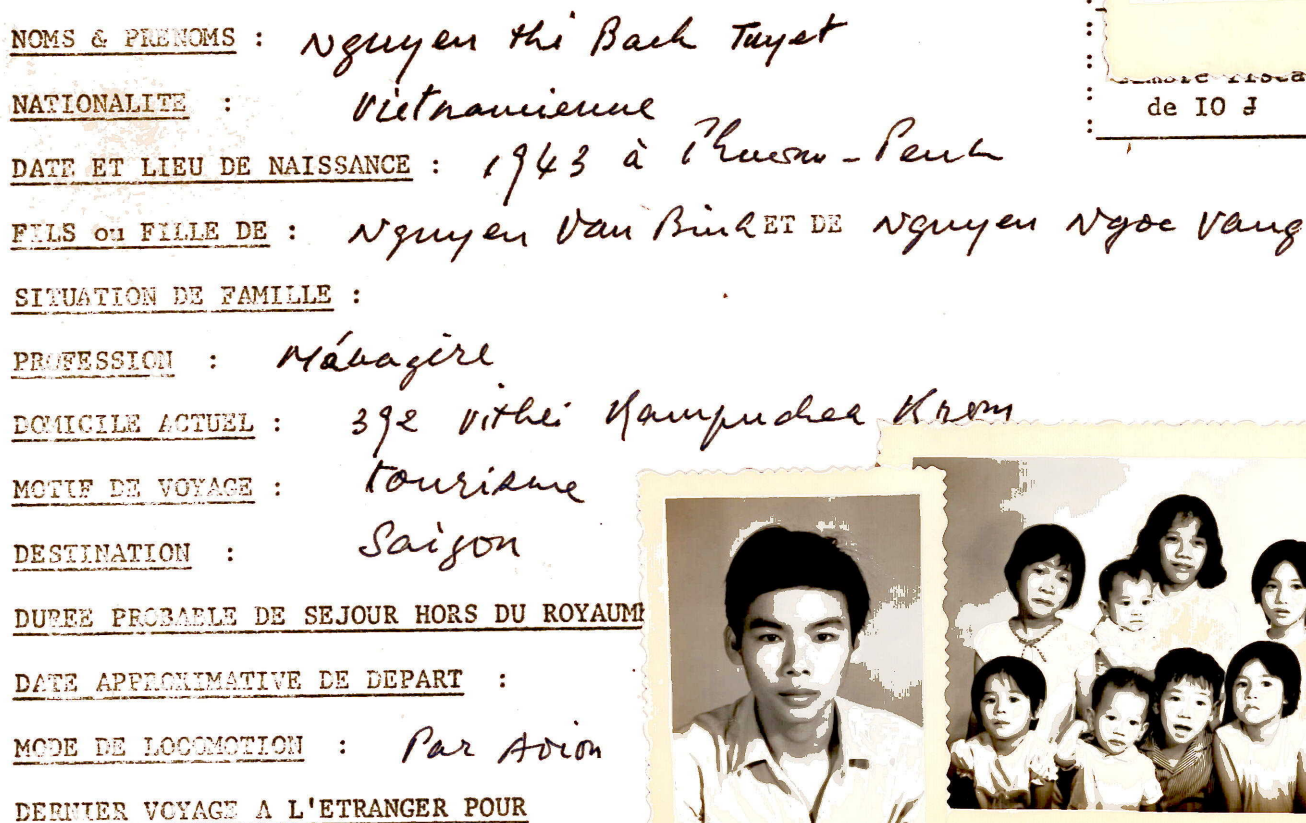 NOMS & PRENOMS : Nguyen thi Bach Tuyet
fisca
de IO J
NATIONALITE : Vietnamienne
DATE ET LIEU DE NAISSANCE : 1943 à Phnom-Penh
FILS ou FILLE DE : Nguyen Van Binh ET DE Nguyen Ngoc Vang
SITUATION DE FAMILLE :
PROFESSION : Ménagère
DOMICILE ACTUEL : 392 Vithei Kampuchea Krom
MOTIF DE VOYAGE : tourisme
DESTINATION : Saigon
DUREE PROBABLE DE SEJOUR HORS DU ROYAUME
DATE APPROXIMATIVE DE DEPART :
MODE DE LOCOMOTION : Par Avion
DERNIER VOYAGE A L'ETRANGER POUR